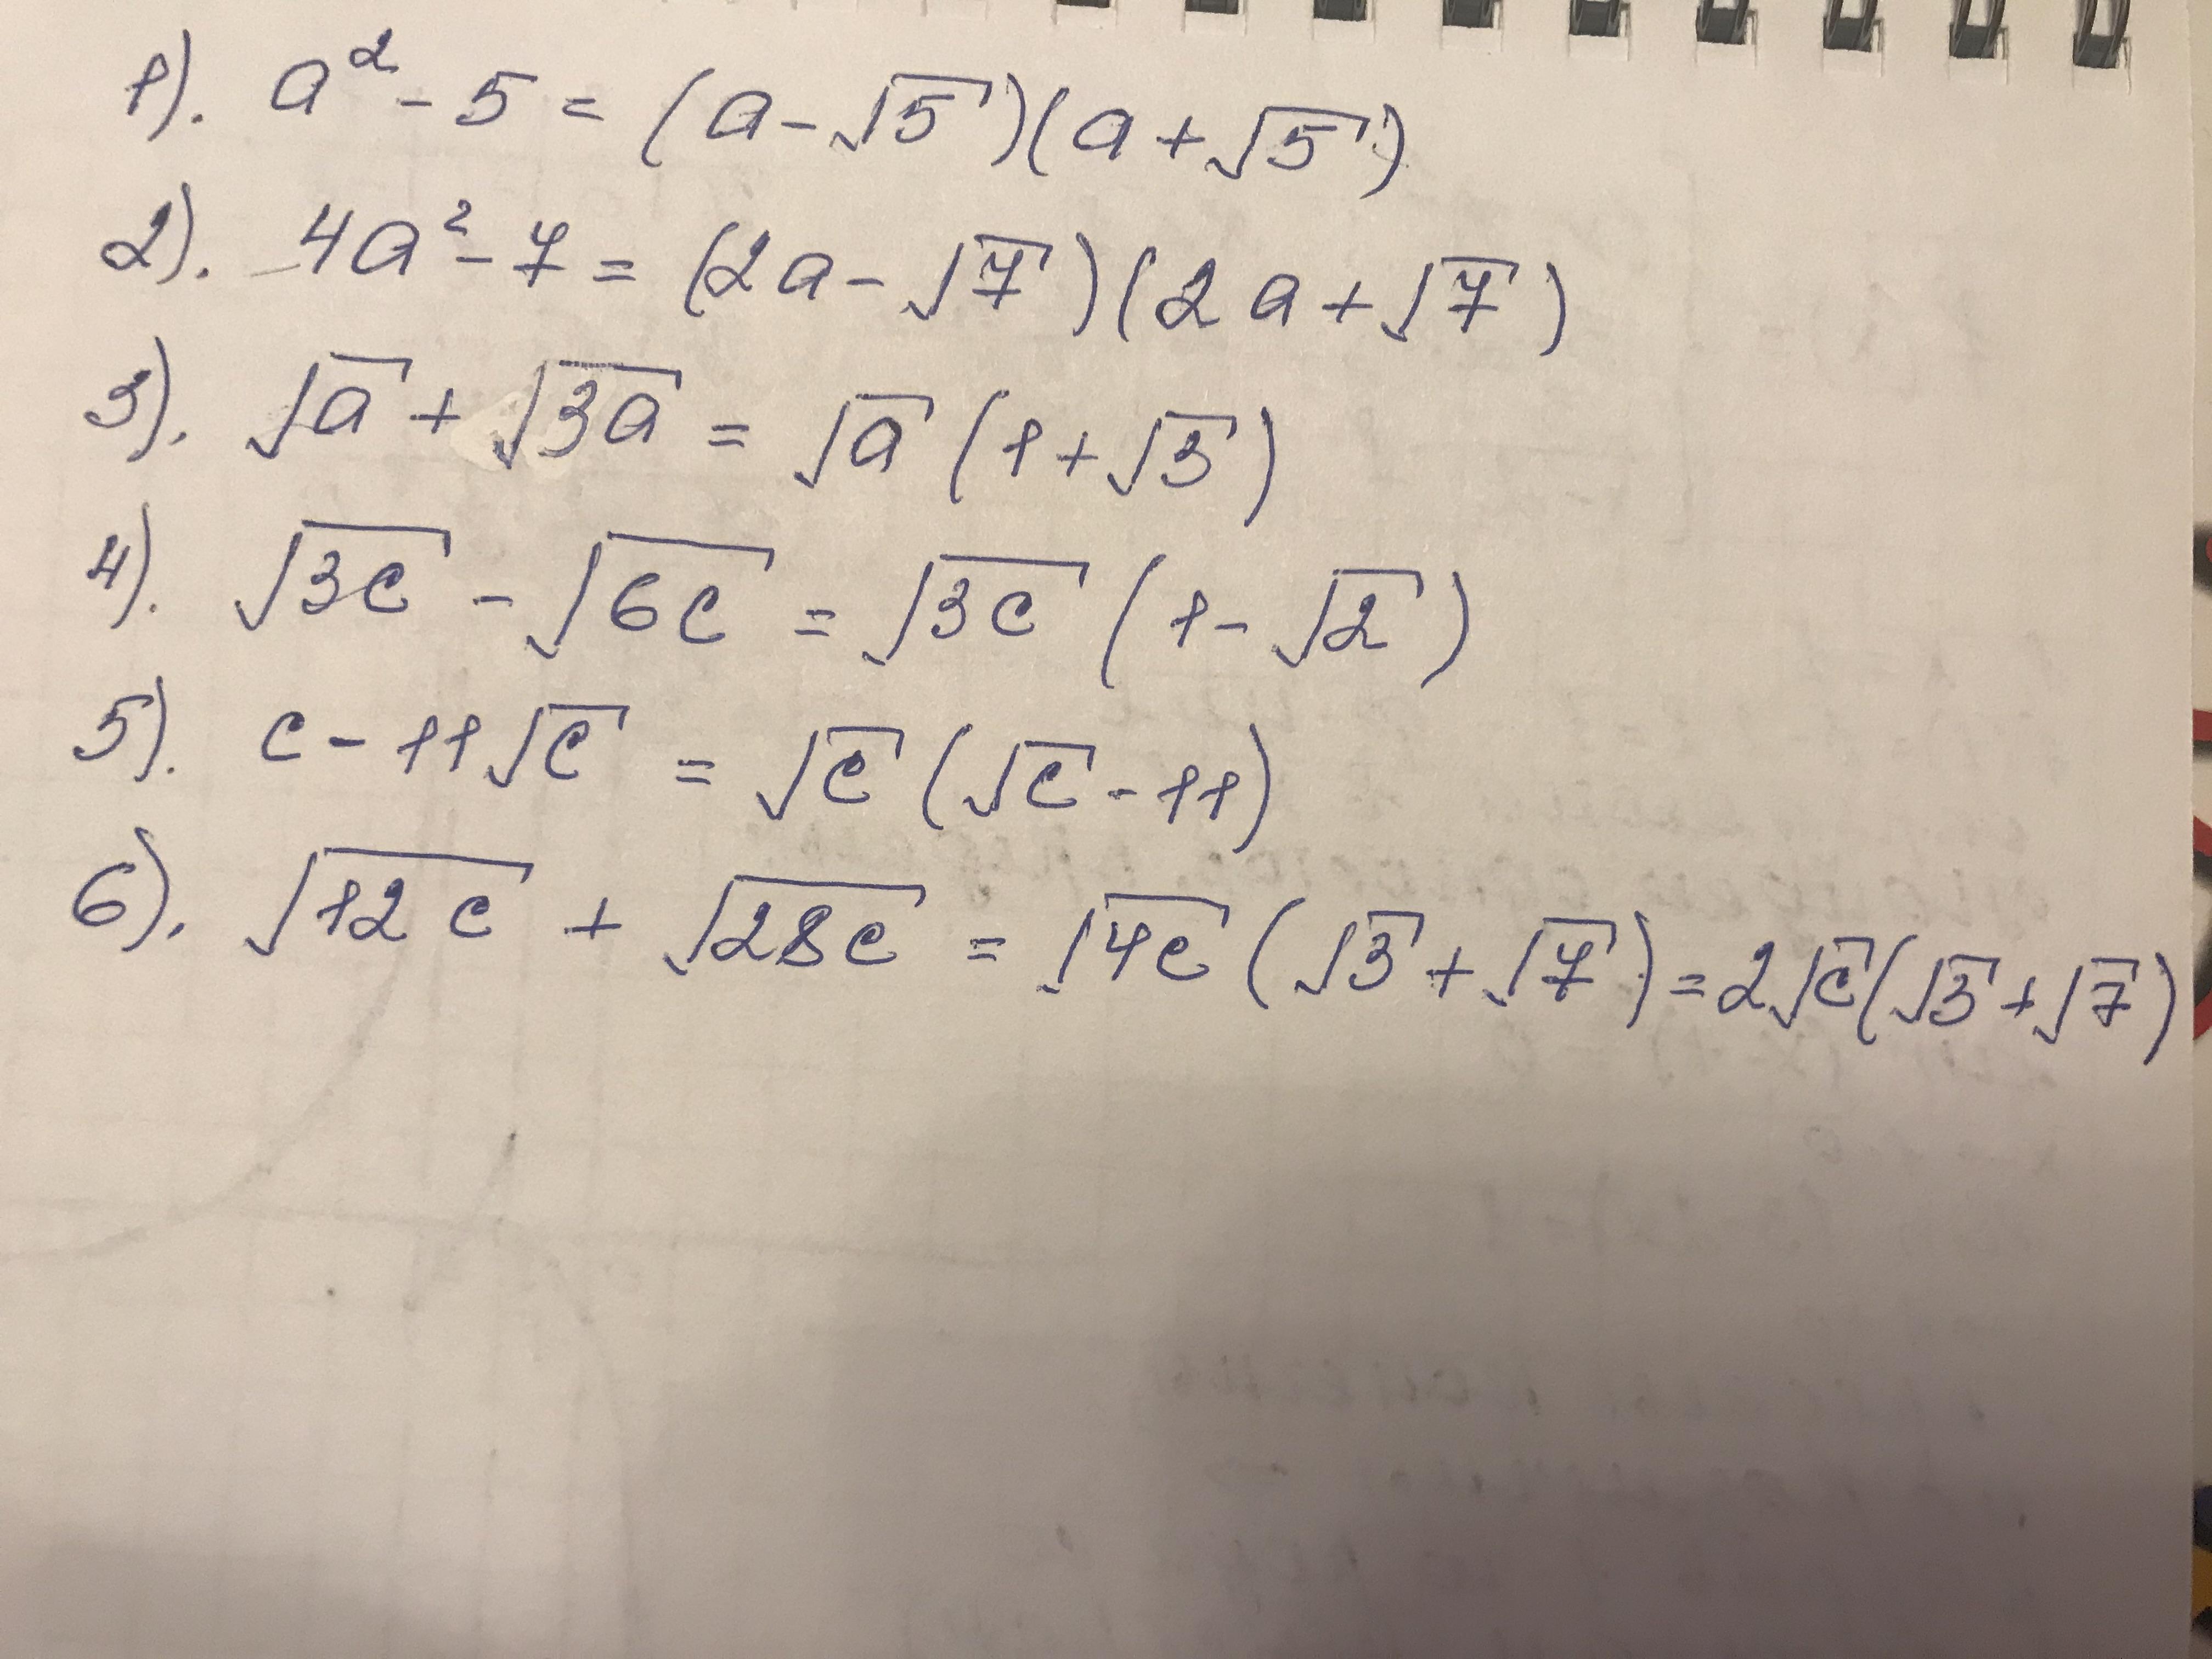 1). a² - 5 = (a - √5)(a + √5)
2). 4a² - 7 = (2a - √7)(2a + √7)
3). √a + √3a = √a (1 + √3)
4). √3c - √6c = √3c (1 - √2)
5). c - 11√c = √c (√c - 11)
6). √12c + √28c = √4c (√3 + √7) = 2√c(√3 + √7)